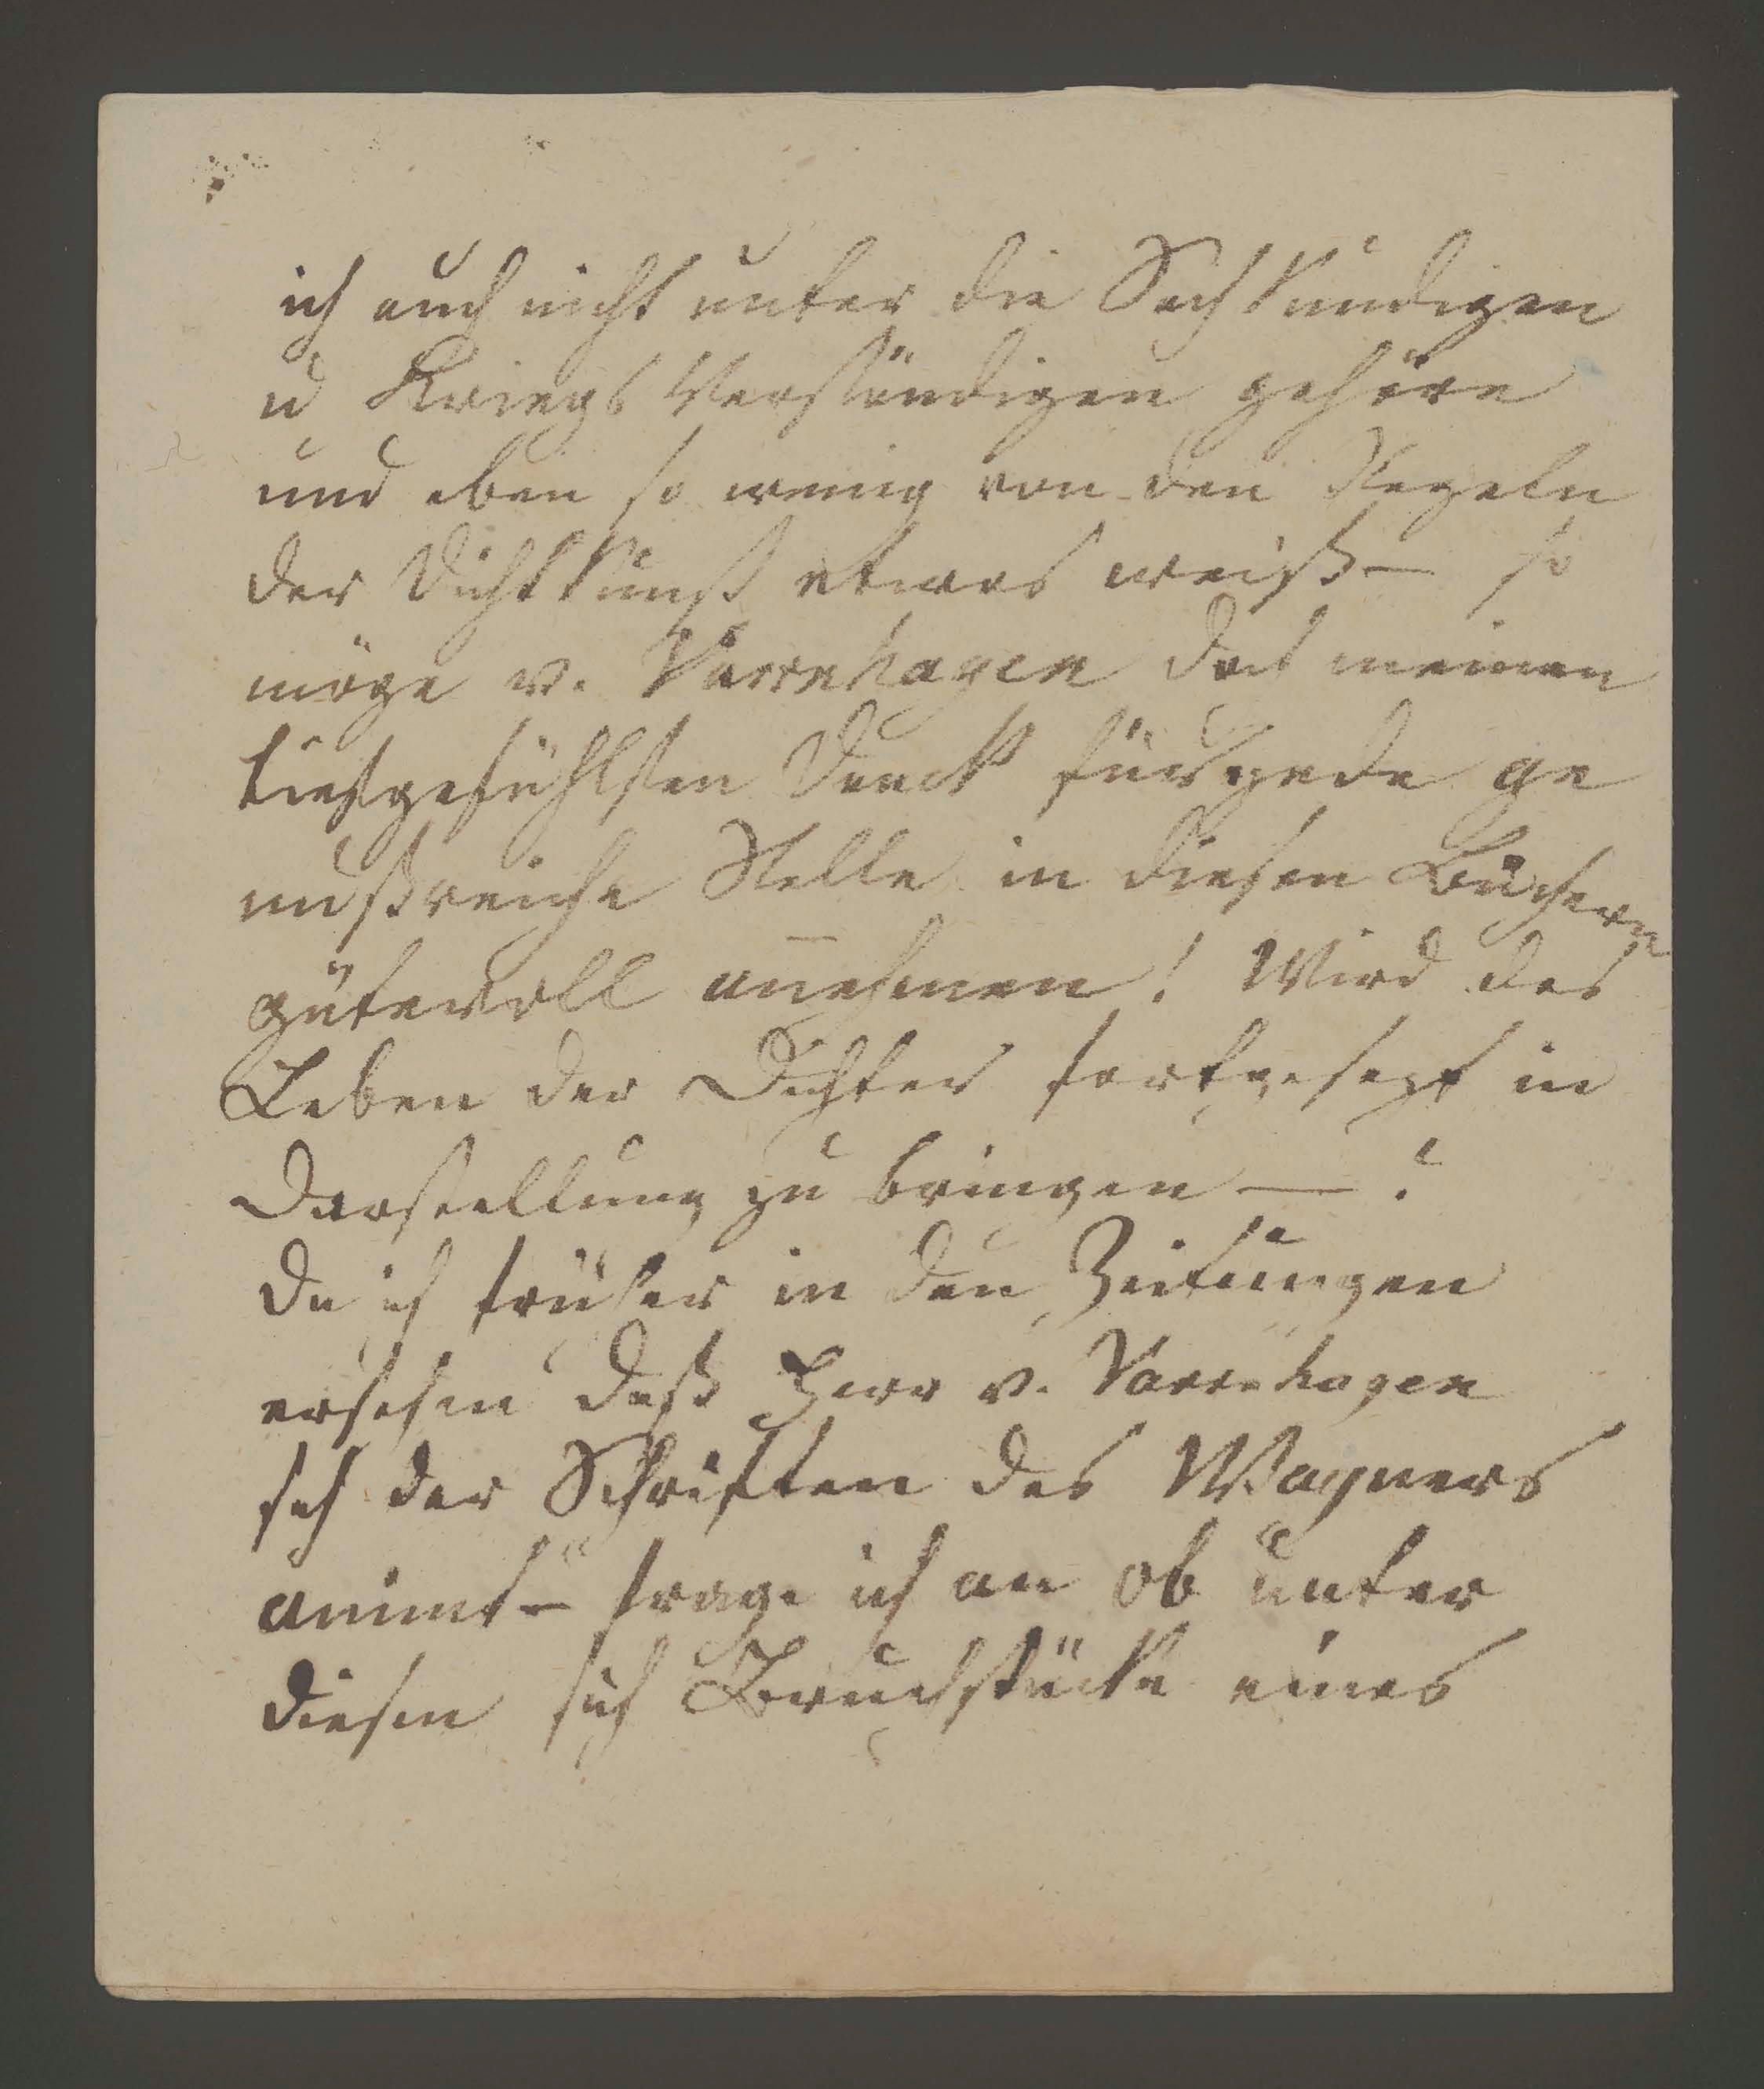 ich auch nicht unter die Sach kundigen
u Kriegs Verständigen gehöre
und eben so wenig von den Regeln
der Dichtkunst etwas weiß – so
möge v. Varrnhagen doch meinen
tiefgefühlsten Danck für jede ge
nußreiche Stelle in diesen Büchern
gütevoll anehmen! Wird das
Leben der Dichter fortgesezt in
Darstellung zu bringen – ?
Da ich früher in den Zeitungen
ersehen daß Herr v. Varrnhagen
sich der Schriften des Wagners
animt – frage ich an ob unter
diesen sich Bruchstücke eines